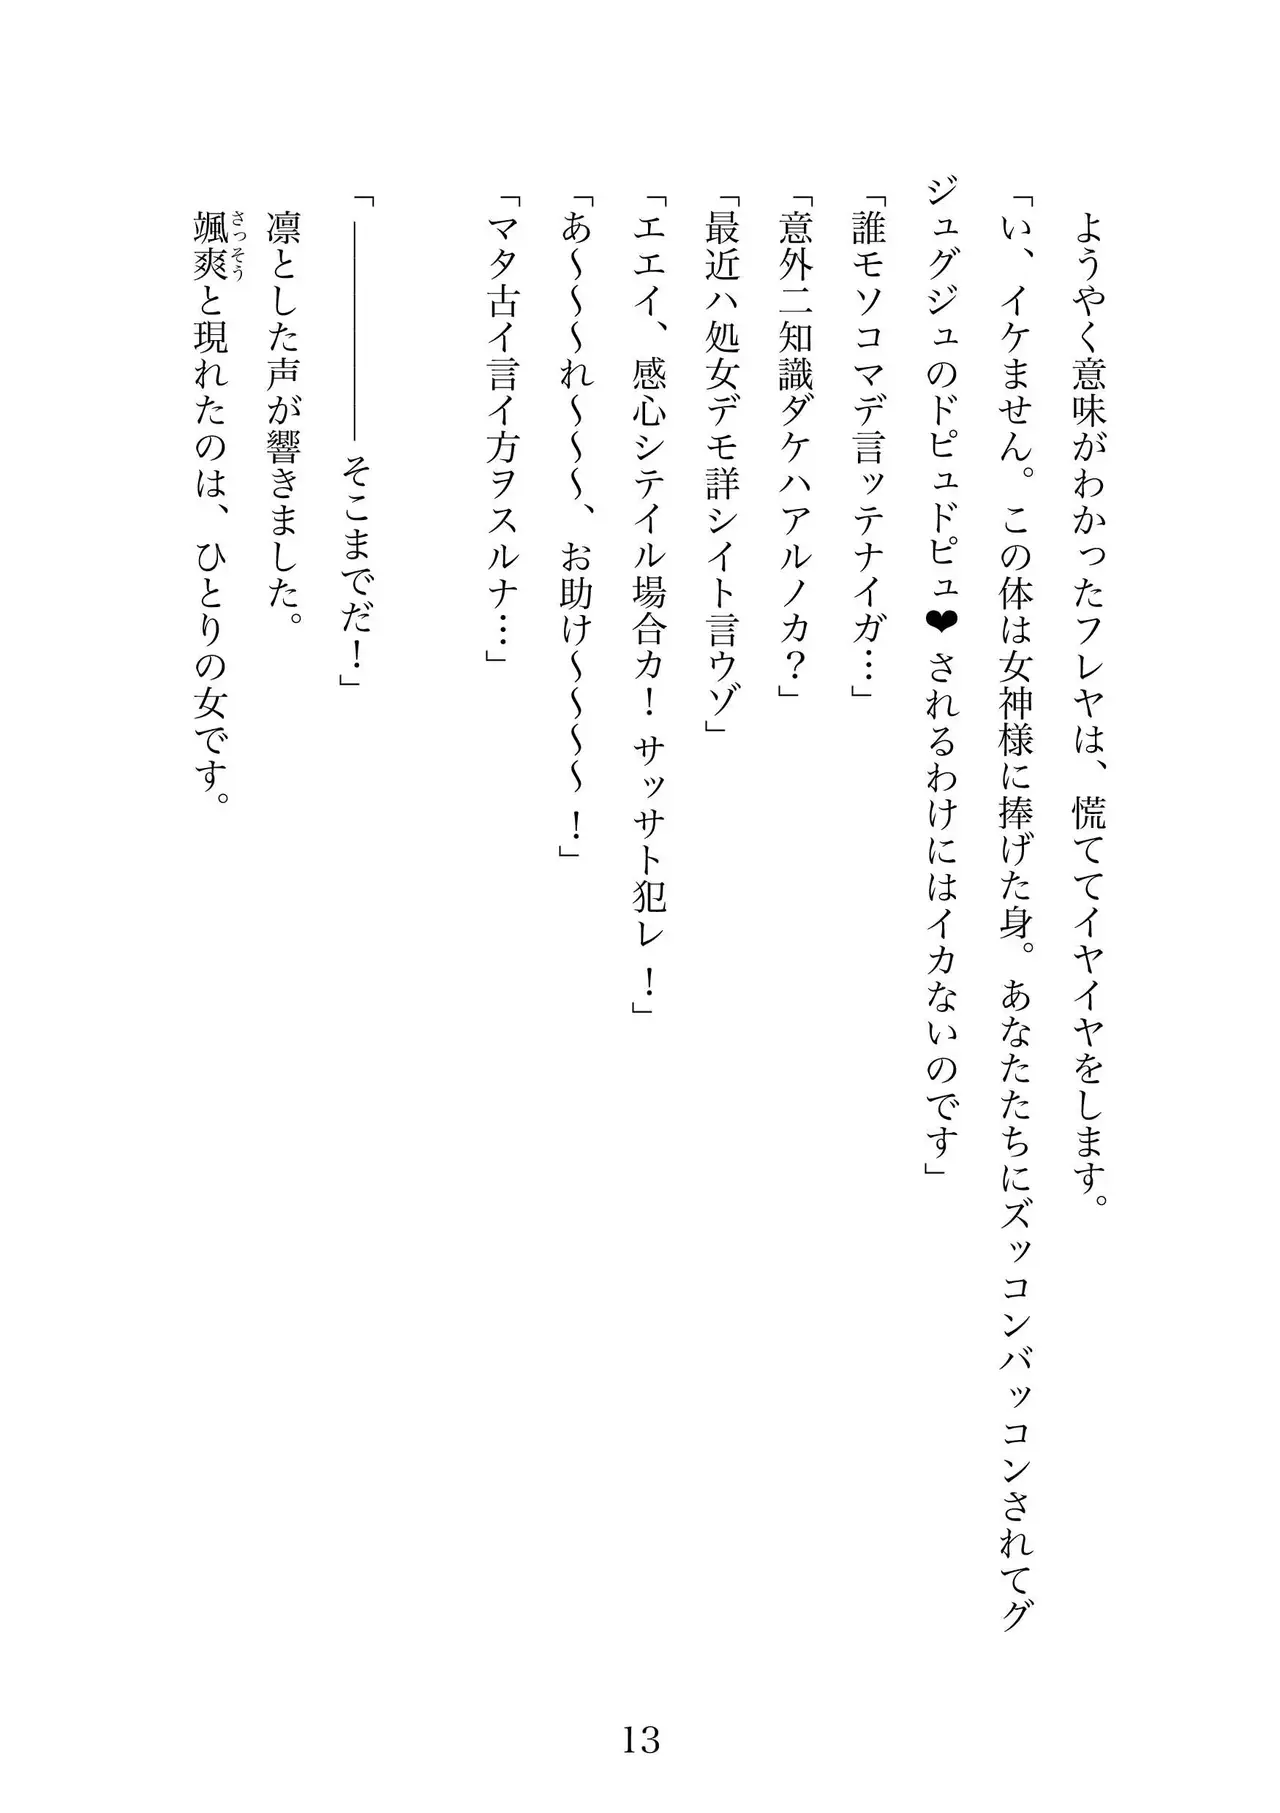 ようやく意味がわかったフレヤは、慌ててイヤイヤをします。
「い、イケません。この体は女神様に捧げた身。あなたたちにズッコンバッコンされてグ
ジュグジュのドピュドピュ❤されるわけにはイカないのです」
「誰モソコマデ言ッテナイガ…」
「意外ニ知識ダケハアルノカ？」
「最近ハ処女デモ詳シイト言ウゾ」
「エエイ、感心シテイル場合カ！サッサト犯レ！」
「あ～～～れ～～～、お助け～～～～！」
「マタ古イ言イ方ヲスルナ…」
「――――――そこまでだ！」
凛とした声が響きました。
颯爽と現れたのは、ひとりの女です。
さっそう
13